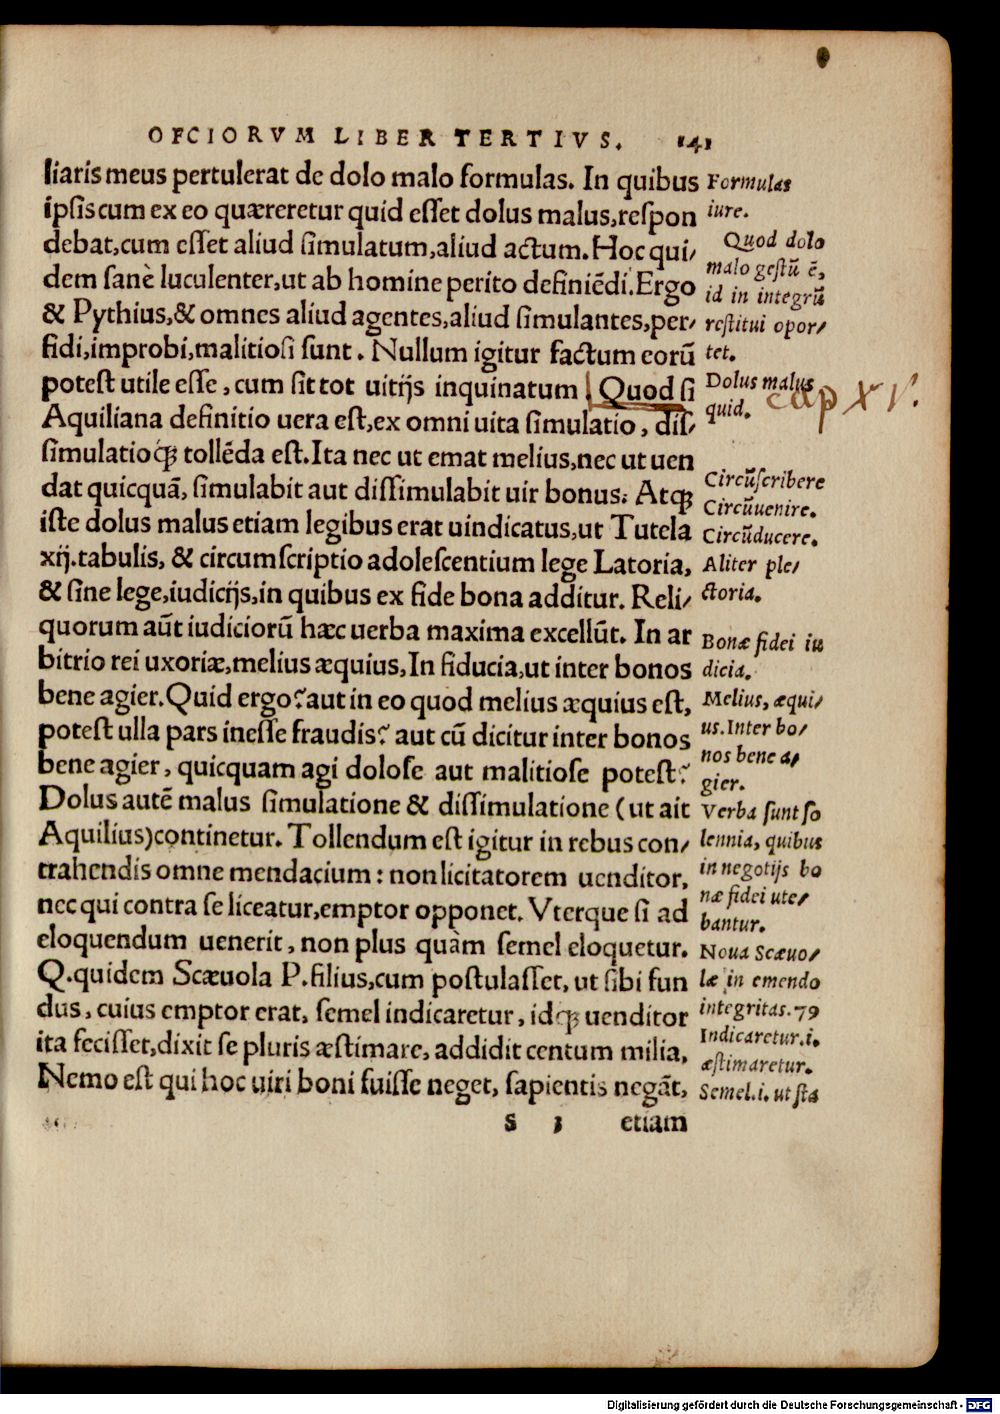 OFCIORVM LIBER TERTIVS. 141
liaris meus pertulerat de dolo malo formulas. In quibus
ipsis cum ex eo quæreretur quid eſſet dolus malus, reſpon
debat, cum eſſet aliud ſimulatum, aliud actum. Hoc qui/
dem ſanè luculenter, ut ab homine perito definiēdi. Ergo
& Pythius, & omnes aliud agentes, aliud ſimulantes, per/
fidi, improbi, malitioſi ſunt. Nullum igitur factum eorū
poteſt utile eſſe, cum ſit tot uitijs inquinatum. Quod ſi
Aquiliana definitio uera eſt, ex omni uita ſimulatio, diſ/
ſimulatioq́ꝫ tollēda eſt. Ita nec ut emat melius, nec ut uen
dat quicquā, ſimulabit aut diſſimulabit uir bonus. Atqꝫ
iſte dolus malus etiam legibus erat uindicatus, ut Tutela
xij. tabulis, & circumſcriptio adoleſcentium lege Latoria,
& ſine lege, iudicijs, in quibus ex fide bona additur. Reli/
quorum aūt iudiciorū hæc uerba maxima excellūt. In ar
bitrio rei uxoriæ, melius æquius, In fiducia, ut inter bonos
bene agier. Quid ergo? aut in eo quod melius æquius eſt,
poteſt ulla pars ineſſe fraudis? aut cū dicitur inter bonos
bene agier, quicquam agi doloſe aut malitioſe poteſt?
Dolus autē malus ſimulatione & diſſimulatione (ut ait
Aquilius) continetur. Tollendum eſt igitur in rebus con/
trahendis omne mendacium: non licitatorem uenditor,
nec qui contra ſe liceatur, emptor opponet. Vterque ſi ad
eloquendum uenerit, non plus quàm ſemel eloquetur.
Q. quidem Scæuola P. filius, cum poſtulaſſet, ut ſibi fun
dus, cuius emptor erat, ſemel indicaretur, idqꝫ uenditor
ita feciſſet, dixit ſe pluris æſtimare, addidit centum milia,
Nemo eſt qui hoc uiri boni fuiſſe neget, ſapientis negāt,
S 3 etiam
Formulas
iure.
Quod dolo
malo geſtū ē,
id in integrū
reſtitui opor/
tet.
Dolus malus
quid.
cap XV.
Circūſcribere
Circūuenire.
Circūducere.
Aliter ple/
ctoria.
Bonæ fidei iu
dicia.
Melius, æqui/
us. Inter bo/
nos bene a/
gier.
Verba ſunt ſo
lennia, quibus
in negotijs bo
næ fidei ute/
bantur.
Noua Scæuo/
læ in emendo
integritas. 79
Indicaretur. i.
æſtimaretur.
Semel. i. ut ſta
Digitalisierung gefördert durch die Deutsche Forschungsgemeinschaft - DFG